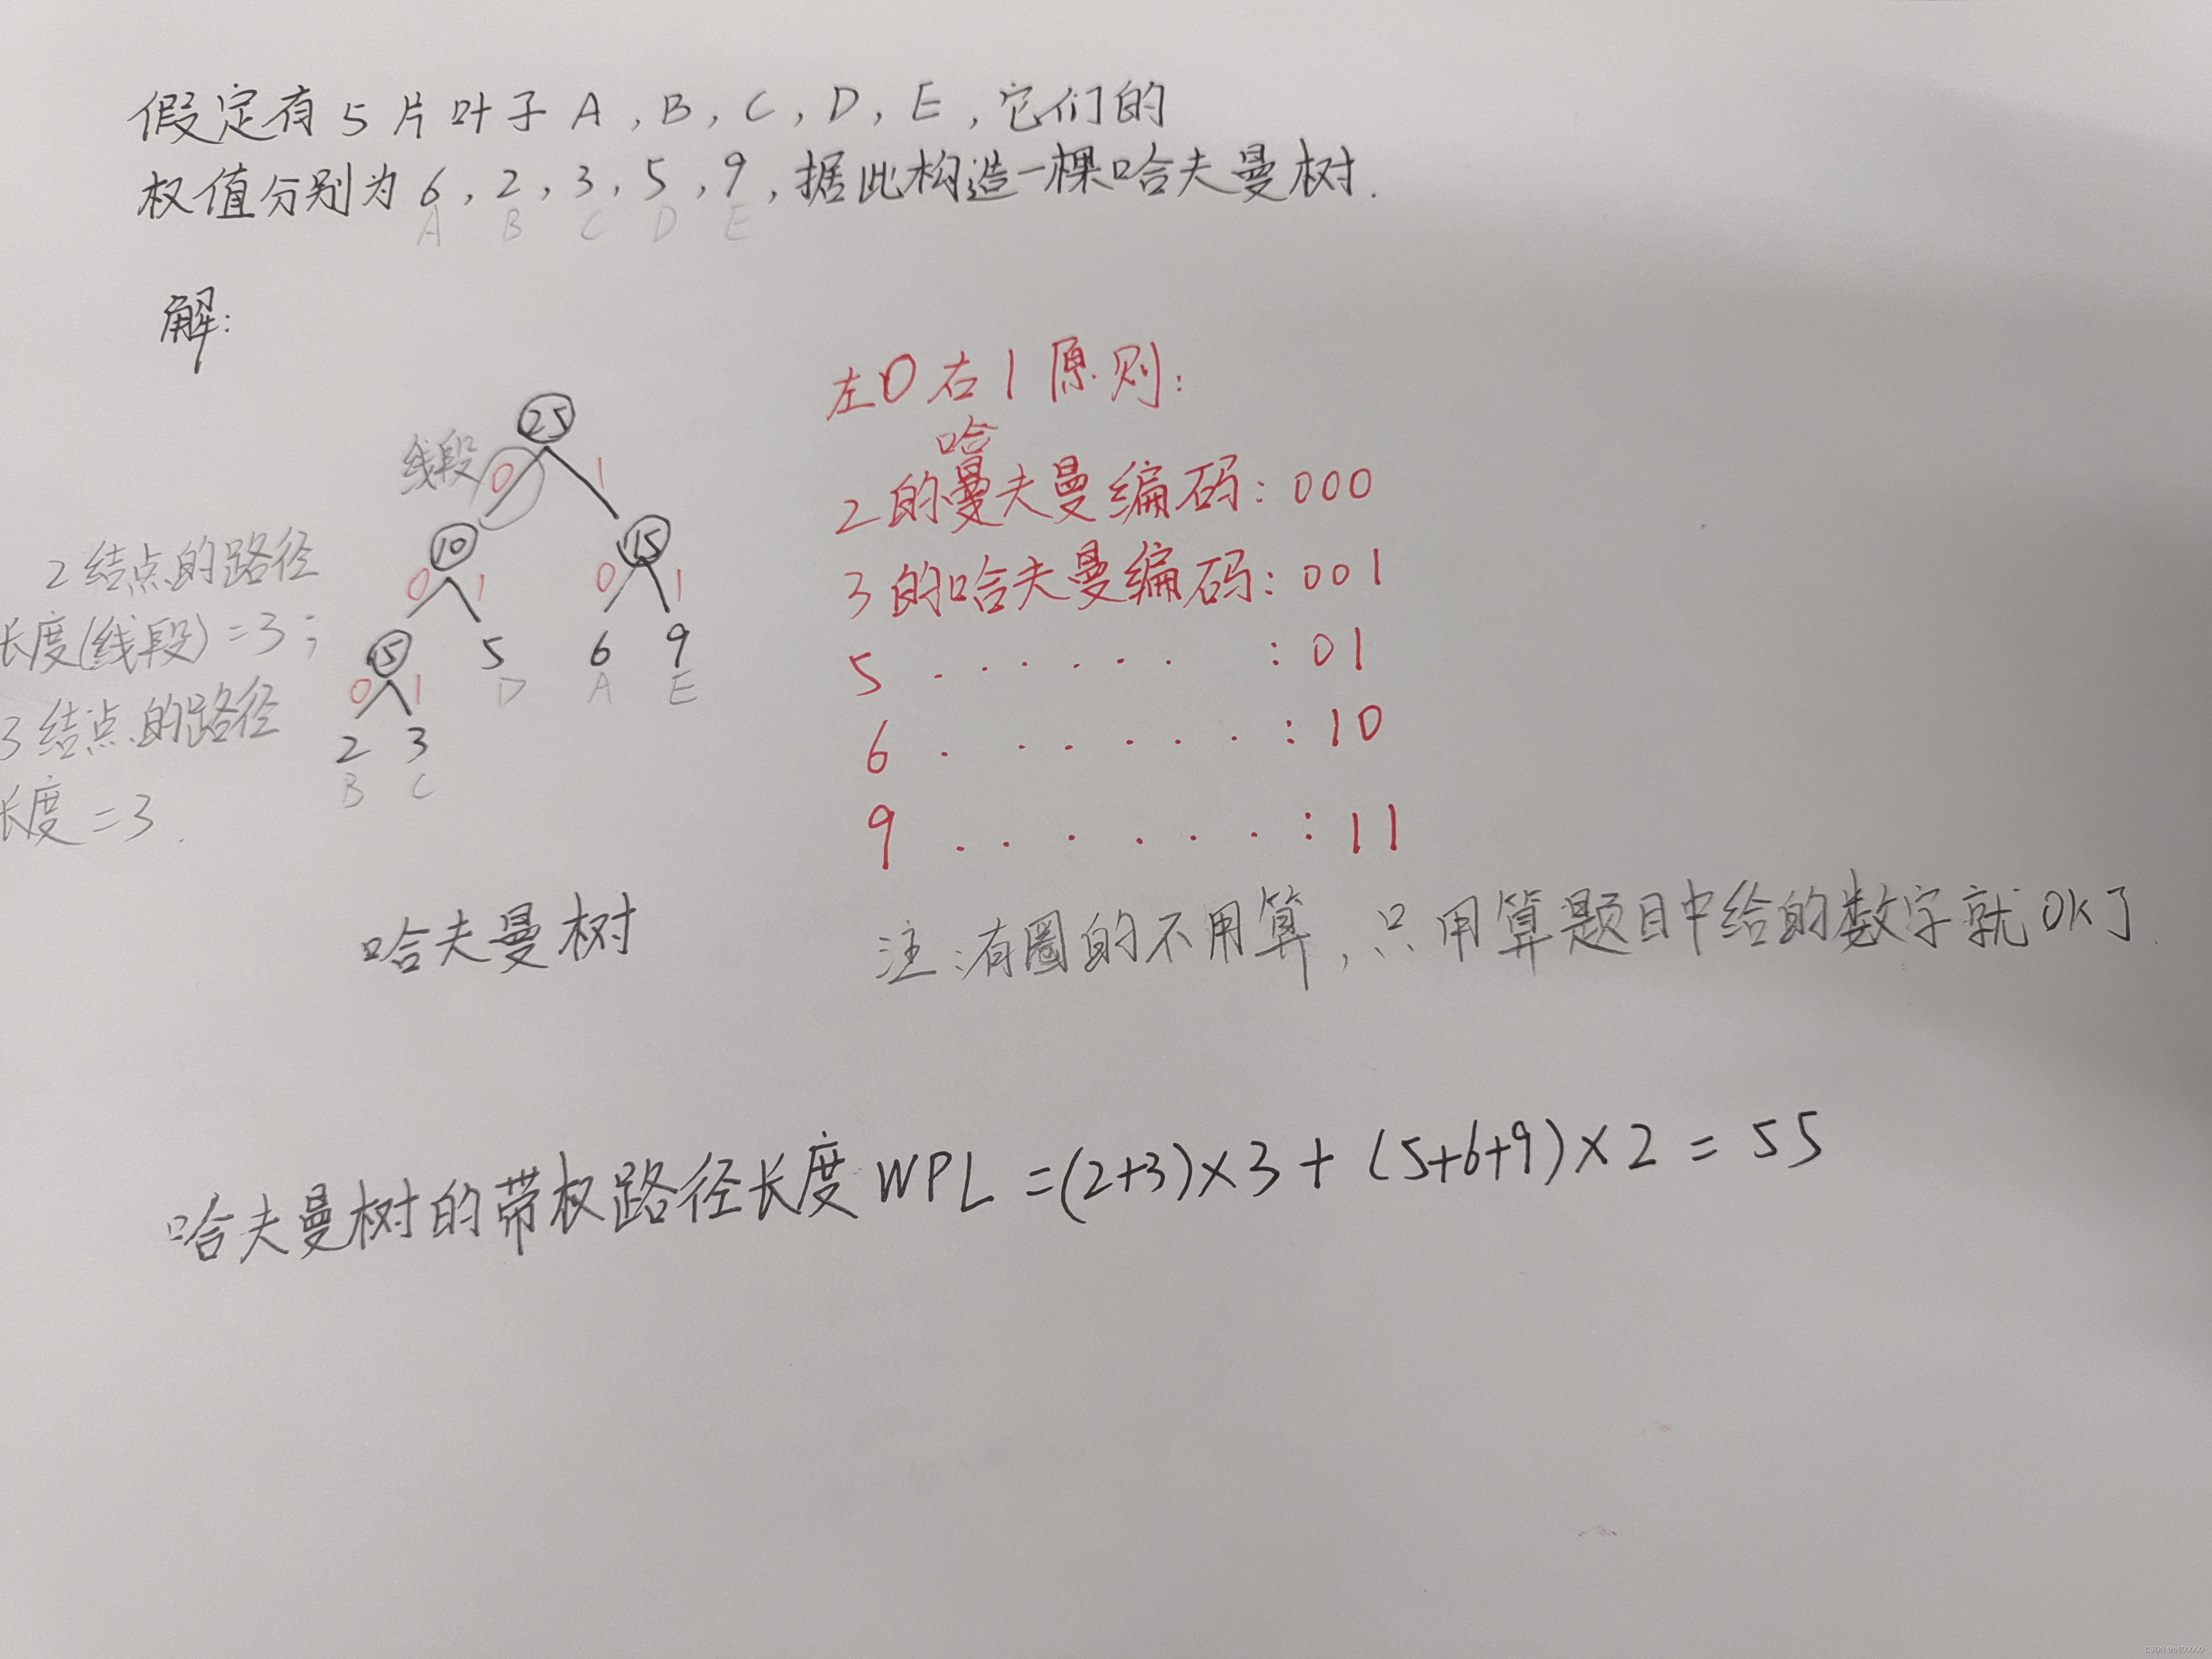 假定有5片叶子A,B,C,D,E,它们的
权值分别为6,2,3,5,9,据此构造一棵哈夫曼树.
A B C D E
解:
25
线段 0 1
10 15
0 1 0 1
5 5 6 9
D A E
0 1
2 3
B C
2结点的路径
长度(线段)=3;
3结点的路径
长度=3.
哈夫曼树
左0右1原则:
哈
2的曼夫曼编码:000
3的哈夫曼编码:001
5 . . . . . . :01
6 . . . . . . :10
9 . . . . . . :11
注:有圈的不用算,只用算题目中给的数字就OK了.
哈夫曼树的带权路径长度WPL=(2+3)×3+(5+6+9)×2=55